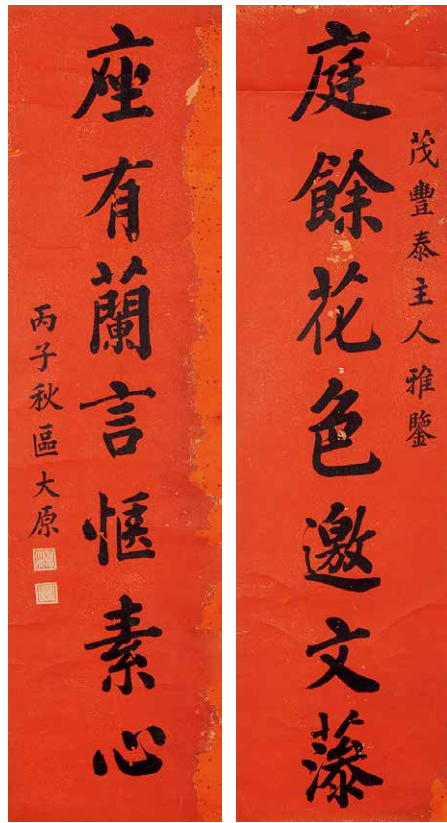 茂豐泰主人雅鑒
庭餘花色邀文藻
座有蘭言愜素心
丙子秋區大原